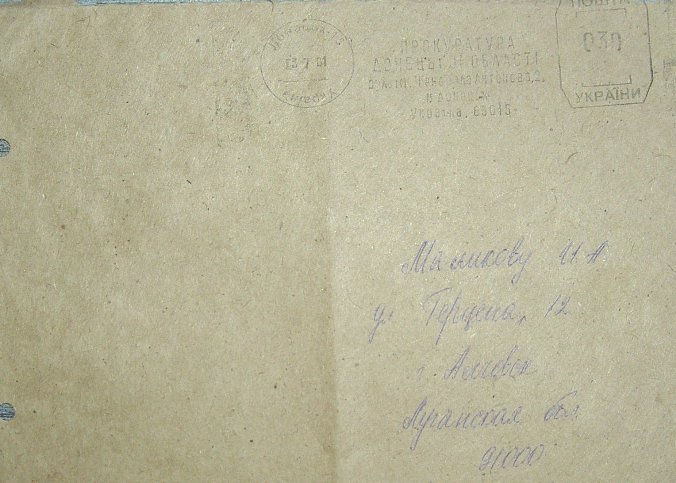 ПОШТА
030
УКРАЇНИ
13.7.01
ПРОКУРАТУРА
ДОНЕЦЬКОЇ ОБЛАСТІ
УКРАЇНА, 83015
Маликову И.А.
ул Герцена, 12
г. Алчевск
Луганская обл
91000